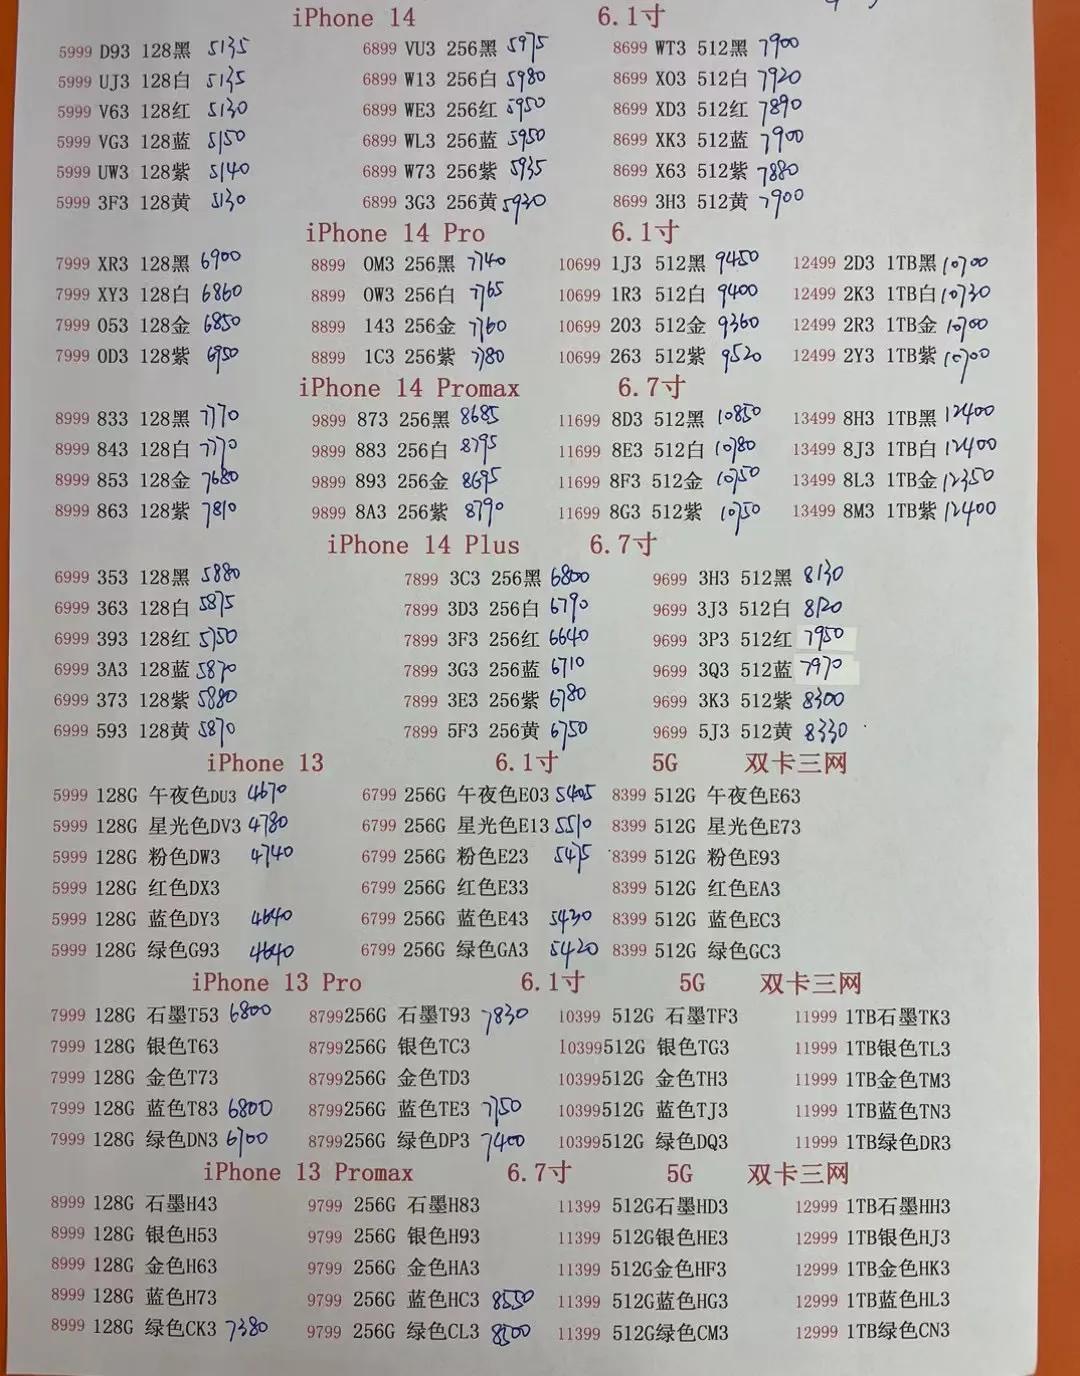 iPhone 14 6.1寸
5999 D93 128黑 5135 6899 VU3 256黑 5975 8699 WT3 512黑 7900
5999 UJ3 128白 5135 6899 W13 256白 5980 8699 XO3 512白 7920
5999 V63 128红 5130 6899 WE3 256红 5950 8699 XD3 512红 7890
5999 VG3 128蓝 5150 6899 WL3 256蓝 5950 8699 XK3 512蓝 7900
5999 UW3 128紫 5140 6899 W73 256紫 5935 8699 X63 512紫 7880
5999 3F3 128黄 5130 6899 3G3 256黄 5930 8699 3H3 512黄 7900
iPhone 14 Pro 6.1寸
7999 XR3 128黑 6900 8899 0M3 256黑 7740 10699 1J3 512黑 9450 12499 2D3 1TB黑 10700
7999 XY3 128白 6860 8899 0W3 256白 7765 10699 1R3 512白 9400 12499 2K3 1TB白 10730
7999 053 128金 6850 8899 143 256金 7760 10699 203 512金 9360 12499 2R3 1TB金 10700
7999 0D3 128紫 6950 8899 1C3 256紫 7780 10699 263 512紫 9520 12499 2Y3 1TB紫 10700
iPhone 14 Promax 6.7寸
8999 833 128黑 7770 9899 873 256黑 8685 11699 8D3 512黑 10850 13499 8H3 1TB黑 12400
8999 843 128白 7770 9899 883 256白 8795 11699 8E3 512白 10780 13499 8J3 1TB白 12400
8999 853 128金 7680 9899 893 256金 8695 11699 8F3 512金 10750 13499 8L3 1TB金 12350
8999 863 128紫 7810 9899 8A3 256紫 8790 11699 8G3 512紫 10750 13499 8M3 1TB紫 12400
iPhone 14 Plus 6.7寸
6999 353 128黑 5880 7899 3C3 256黑 6800 9699 3H3 512黑 8130
6999 363 128白 5875 7899 3D3 256白 6790 9699 3J3 512白 8120
6999 393 128红 5750 7899 3F3 256红 6640 9699 3P3 512红 7950
6999 3A3 128蓝 5870 7899 3G3 256蓝 6710 9699 3Q3 512蓝 7970
6999 373 128紫 5880 7899 3E3 256紫 6780 9699 3K3 512紫 8300
6999 593 128黄 5870 7899 5F3 256黄 6750 9699 5J3 512黄 8330
iPhone 13 6.1寸 5G 双卡三网
5999 128G 午夜色DU3 4670 6799 256G 午夜色E03 5405 8399 512G 午夜色E63
5999 128G 星光色DV3 4780 6799 256G 星光色E13 5510 8399 512G 星光色E73
5999 128G 粉色DW3 4740 6799 256G 粉色E23 5475 8399 512G 粉色E93
5999 128G 红色DX3 6799 256G 红色E33 8399 512G 红色EA3
5999 128G 蓝色DY3 4640 6799 256G 蓝色E43 5430 8399 512G 蓝色EC3
5999 128G 绿色G93 4640 6799 256G 绿色GA3 5420 8399 512G 绿色GC3
iPhone 13 Pro 6.1寸 5G 双卡三网
7999 128G 石墨T53 6800 8799256G 石墨T93 7830 10399 512G 石墨TF3 11999 1TB石墨TK3
7999 128G 银色T63 8799256G 银色TC3 10399512G 银色TG3 11999 1TB银色TL3
7999 128G 金色T73 8799256G 金色TD3 10399512G 金色TH3 11999 1TB金色TM3
7999 128G 蓝色T83 6800 8799256G 蓝色TE3 7750 10399512G 蓝色TJ3 11999 1TB蓝色TN3
7999 128G 绿色DN3 6700 8799256G 绿色DP3 7400 10399512G 绿色DQ3 11999 1TB绿色DR3
iPhone 13 Promax 6.7寸 5G 双卡三网
8999 128G 石墨H43 9799 256G 石墨H83 11399 512G石墨HD3 12999 1TB石墨HH3
8999 128G 银色H53 9799 256G 银色H93 11399 512G银色HE3 12999 1TB银色HJ3
8999 128G 金色H63 9799 256G 金色HA3 11399 512G金色HF3 12999 1TB金色HK3
8999 128G 蓝色H73 9799 256G 蓝色HC3 8550 11399 512G蓝色HG3 12999 1TB蓝色HL3
8999 128G 绿色CK3 7380 9799 256G 绿色CL3 8500 11399 512G绿色CM3 12999 1TB绿色CN3